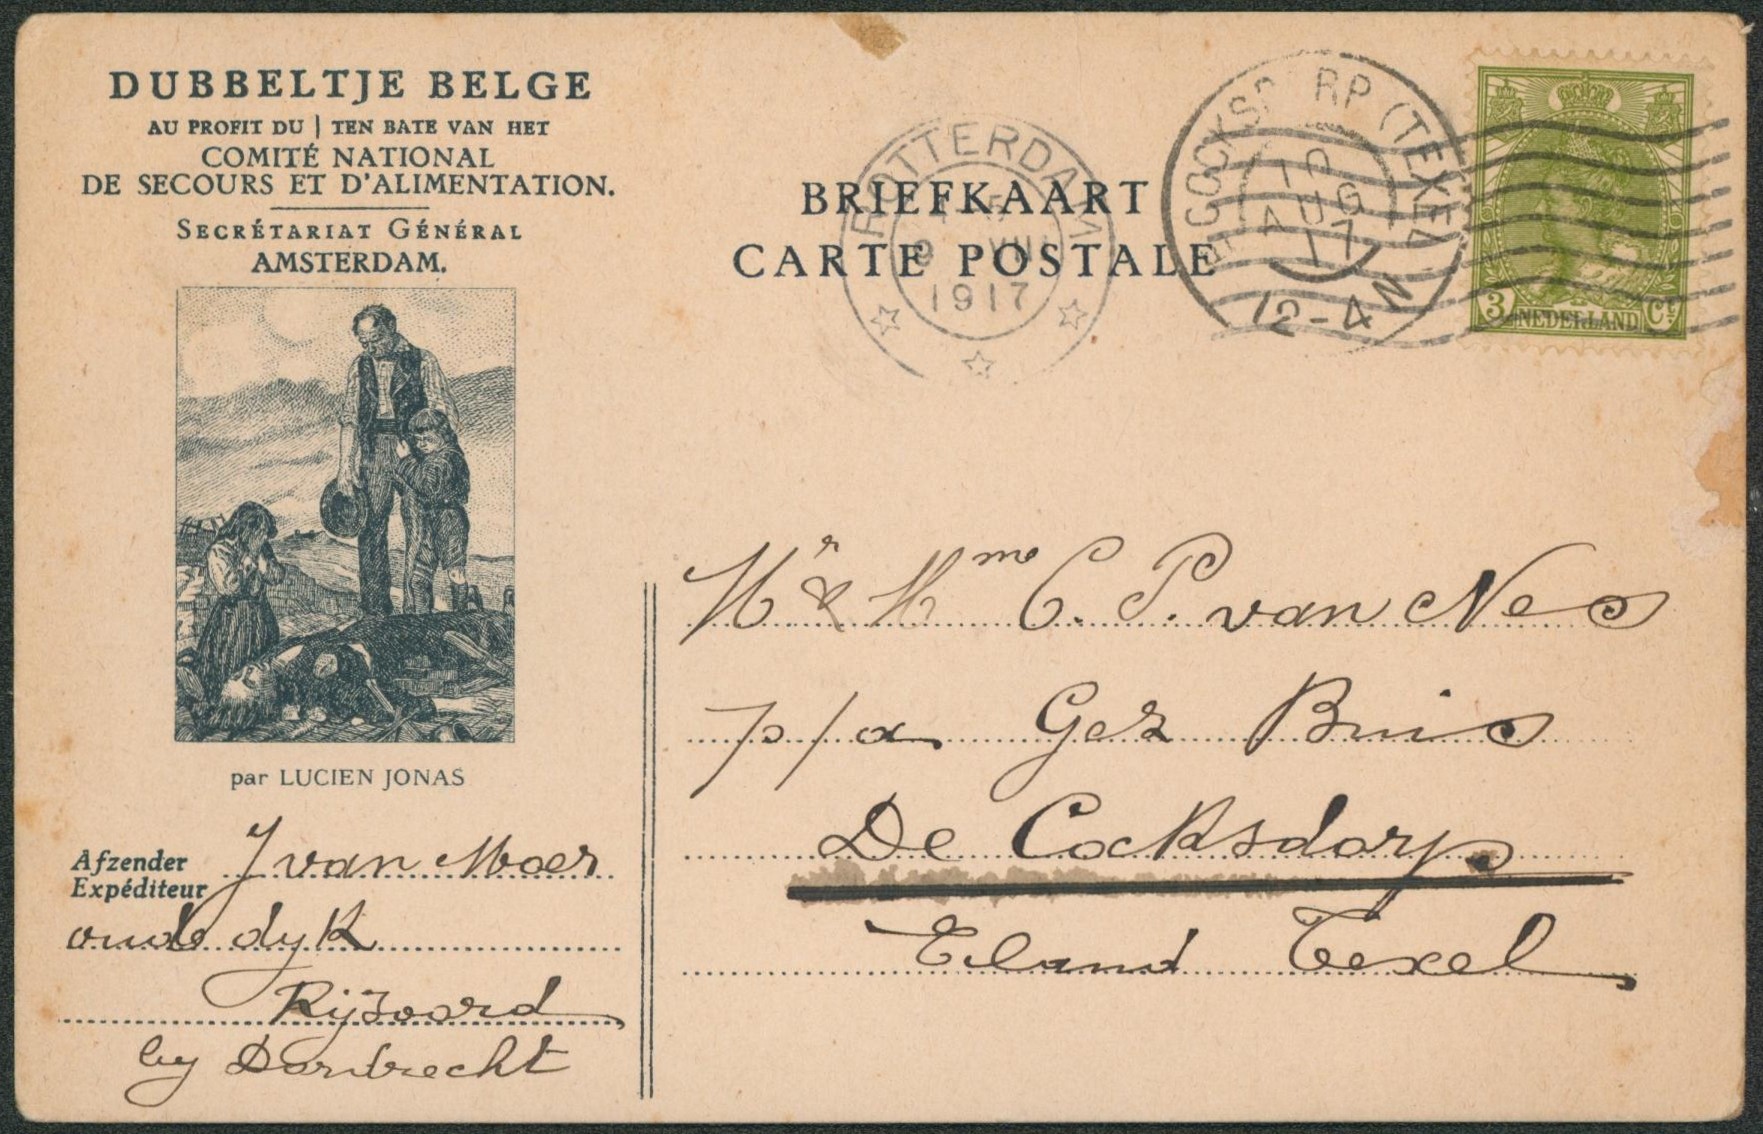 DUBBELTJE BELGE
AU PROFIT DU | TEN BATE VAN HET
COMITÉ NATIONAL
DE SECOURS ET D'ALIMENTATION.
SECRÉTARIAT GÉNÉRAL
AMSTERDAM.
par LUCIEN JONAS
Afzender
Expéditeur
J van Moer
oude dyk
Rijsoord
by Dordrecht
BRIEFKAART
CARTE POSTALE
ROTTERDAM
9 VIII
1917
COCKSD RP (TEXEL
10
AUG
17
12-4 N
3 NEDERLAND Ct
Mr & Mme C. P. van Nes
p/a Gez Buis
De Cocksdorp
Eland Texel